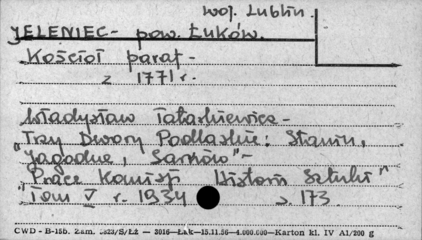 woj. Lublin.
JELENIEC - pow. Łuków.
Kościół paraf -
z 1771 r.
Władysław Tatarkiewicz -
"Trzy Dwory Podlaskie: Stanin,
Jagodne, Sarnów" -
Prace Komisji Historii Sztuki"
Tom V r. 1934 s. 173.
CWD - B-15b. Zam. 1823/S/ŁŻ — 3016—Łak—15.11.56—4.000.000—Karton kl. IV A1/200 g